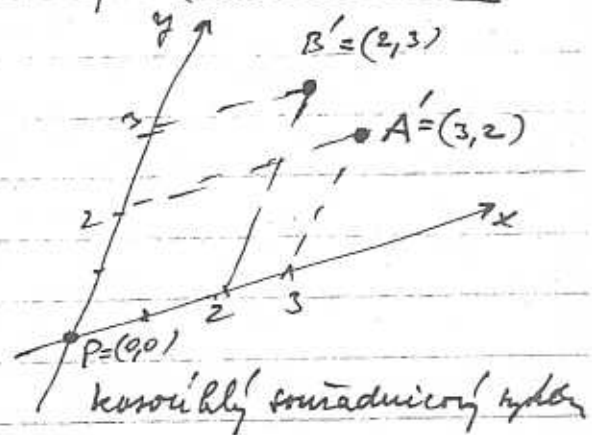 y
B' = (2,3)
3
A' = (3,2)
2
x
2
3
P = (0,0)
kosoúhlý souřadnicový systém